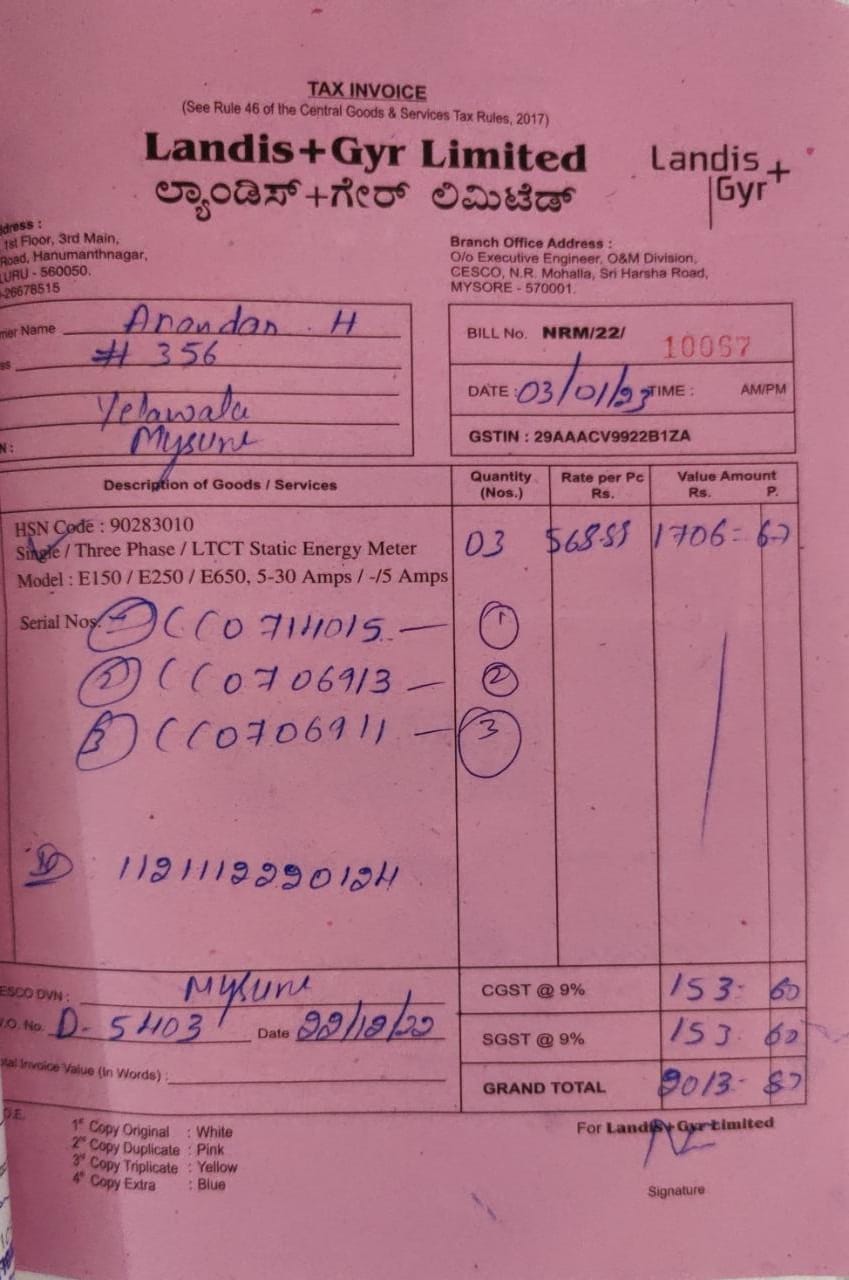 TAX INVOICE
(See Rule 46 of the Central Goods & Services Tax Rules, 2017)
Landis+Gyr Limited
ಲ್ಯಾಂಡಿಸ್+ಗೇರ್ ಲಿಮಿಟೆಡ್
Landis+
Gyr
dress :
1st Floor, 3rd Main,
Road, Hanumanthnagar,
LURU - 560050.
-26678515
Branch Office Address :
O/o Executive Engineer, O&M Division,
CESCO, N.R. Mohalla, Sri Harsha Road,
MYSORE - 570001.
mer Name Anandan . H
ss # 356
Yelawala
N: Mysure
BILL No. NRM/22/ 10067
DATE : 03/01/23 TIME : AM/PM
GSTIN : 29AAACV9922B1ZA
Description of Goods / Services Quantity (Nos.) Rate per Pc Rs. Value Amount Rs. P.
HSN Code : 90283010
Single / Three Phase / LTCT Static Energy Meter 03 568-88 1706-67
Model : E150 / E250 / E650, 5-30 Amps / -/5 Amps
Serial Nos. 1 CC0714015 — 1
2 CC0706913 — 2
3 CC0706911 — 3
ID 11211122290124
ESCO DVN : Mysure
.O. No. D- 5403 Date 22/12/22
tal Invoice Value (In Words) :
CGST @ 9% 153- 60
SGST @ 9% 153 60
GRAND TOTAL 2013- 87
O.E.
1st Copy Original : White
2nd Copy Duplicate : Pink
3rd Copy Triplicate : Yellow
4th Copy Extra : Blue
For Landis+Gyr Limited
Signature